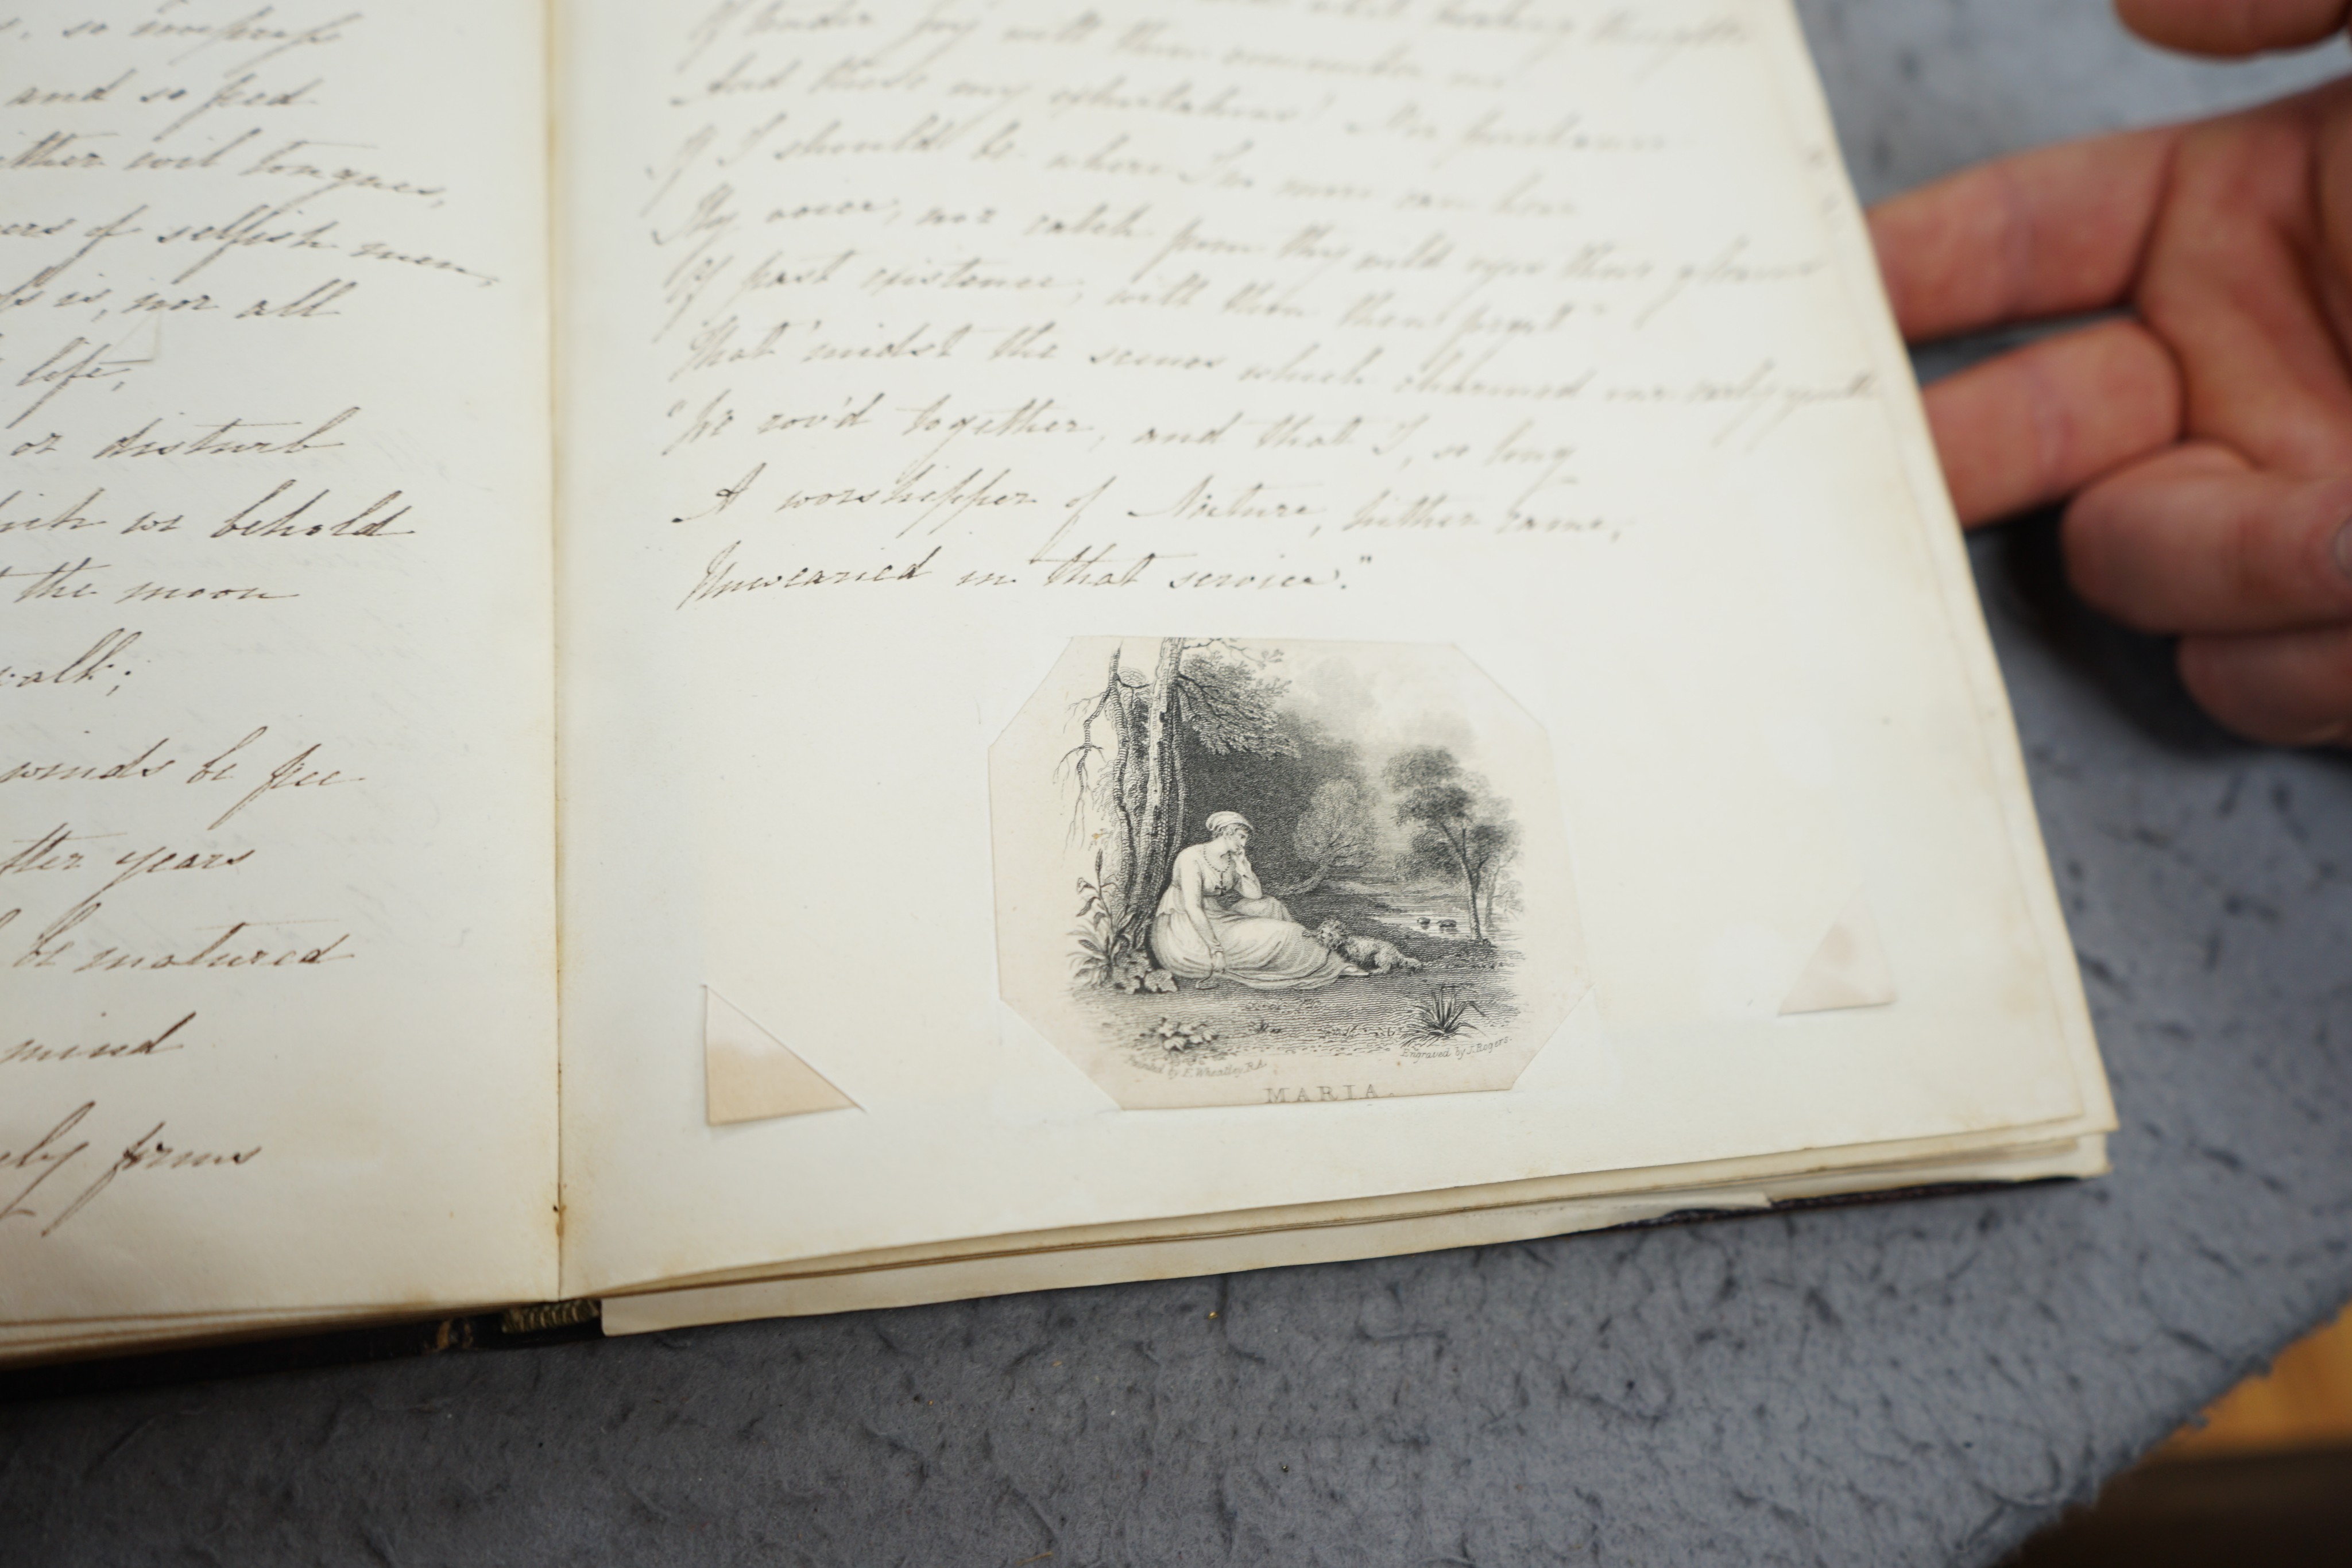 so impress
and so feed
ither evil tongues,
ers of selfish men,
is, nor all
life,
or disturb
hich we behold
the moon
walk;
winds be free
fter years
be matured
mind
ely forms
what healing thoughts
Of tender joy wilt thou remember me
And these my exhortations! Nor perchance
If I should be where I no more can hear
Thy voice, nor catch from thy wild eyes these gleams
Of past existence, wilt thou then forget
That 'midst the scenes which charmed our early youth
"We rov'd together, and that I, so long
A worshipper of Nature, hither came,
Unwearied in that service."
Painted by F. Wheatley, R.A.
Engraved by J. Rogers.
MARIA.